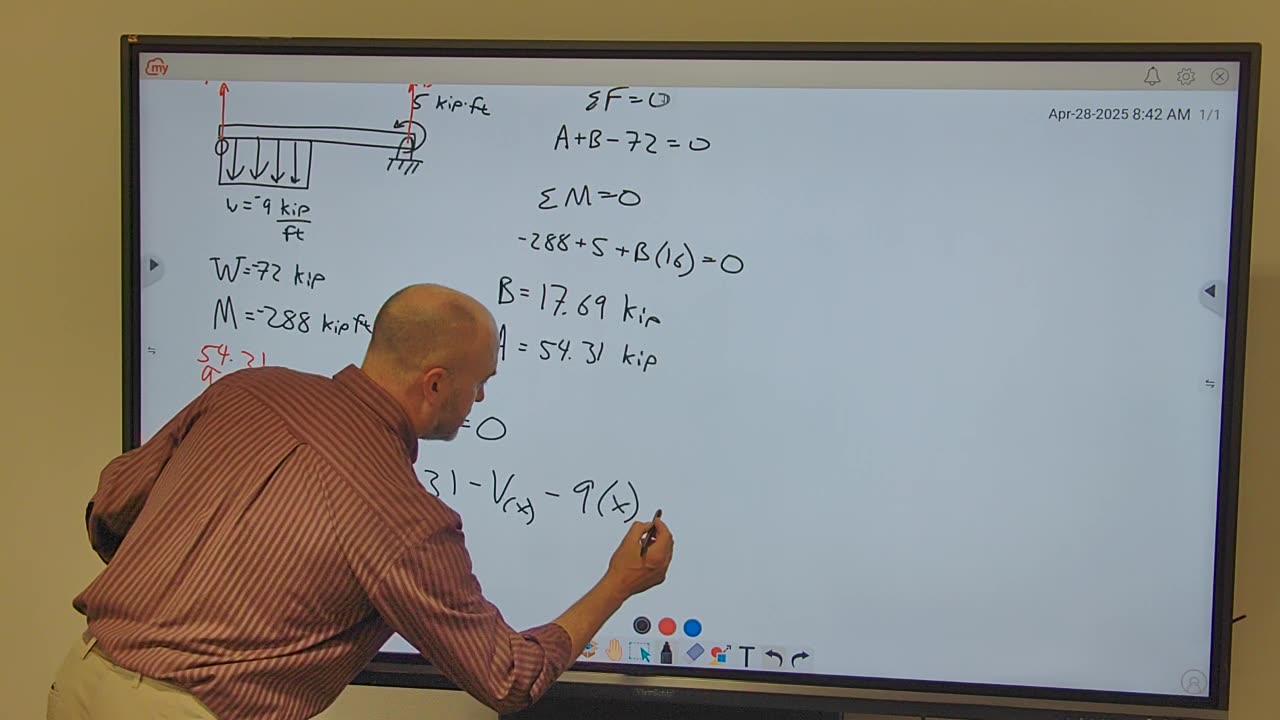 my
Apr-28-2025 8:42 AM 1/1
5 kip·ft
w=-9 kip/ft
W=-72 kip
M=-288 kip ft
54.31
9
ΣF=0
A+B-72=0
ΣM=0
-288+5+B(16)=0
B=17.69 kip
A=54.31 kip
=0
31-V(x)-9(x)
T
ViewSonic